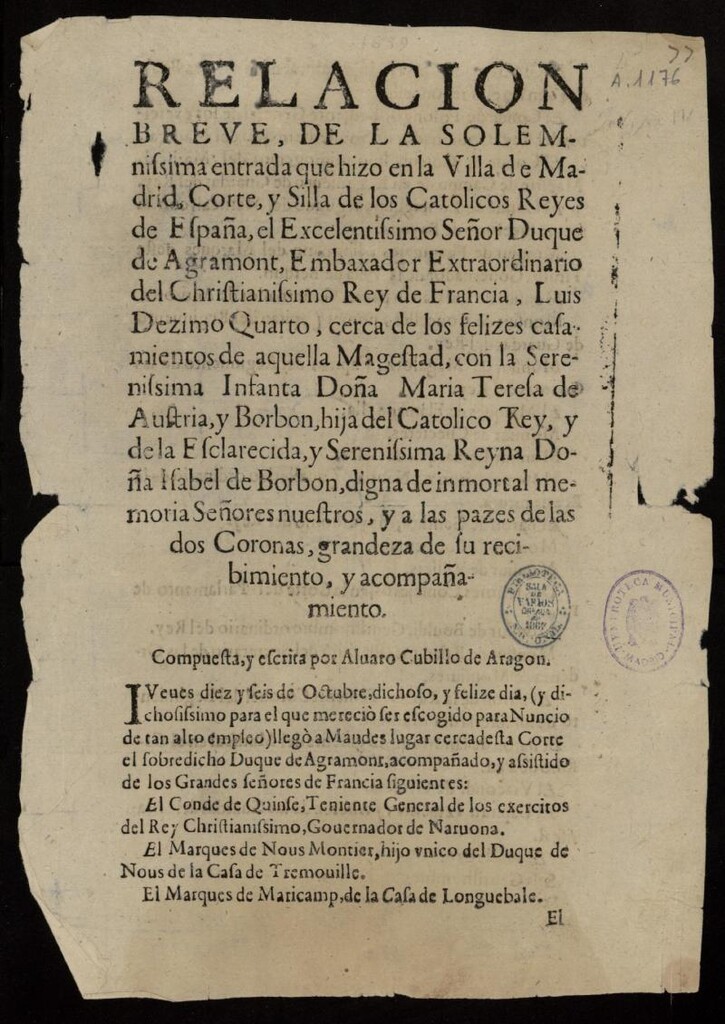 77
A.1176
RELACION
BREVE, DE LA SOLEM-
niſsima entrada que hizo en la Villa de Ma-
drid, Corte, y Silla de los Catolicos Reyes
de Eſpaña, el Excelentiſsimo Señor Duque
de Agramont, Embaxador Extraordinario
del Chriſtianiſsimo Rey de Francia, Luis
Dezimo Quarto, cerca de los felizes caſa-
mientos de aquella Mageſtad, con la Sere-
niſsima Infanta Doña Maria Tereſa de
Auſtria, y Borbon, hija del Catolico Rey, y
de la Eſclarecida, y Sereniſsima Reyna Do-
ña Iſabel de Borbon, digna de inmortal me-
moria Señores nueſtros, y a las pazes de las
dos Coronas, grandeza de ſu reci-
bimiento, y acompaña-
miento.
BIBLIOTECA
SALA
DE
VARIOS
Compueſta, y eſcrita por Aluaro Cubillo de Aragon.
IVeues diez y ſeis de Octubre, dichoſo, y felize dia, (y di-
choſiſsimo para el que mereciò ſer eſcogido para Nuncio
de tan alto empleo) llegò a Maudes lugar cerca deſta Corte
el ſobredicho Duque de Agramont, acompañado, y aſsiſtido
de los Grandes ſeñores de Francia ſiguientes:
El Conde de Quinſe, Teniente General de los exercitos
del Rey Chriſtianiſsimo, Gouernador de Naruona.
El Marques de Nous Montier, hijo vnico del Duque de
Nous de la Caſa de Tremouille.
El Marques de Maricamp, de la Caſa de Longuebale.
El